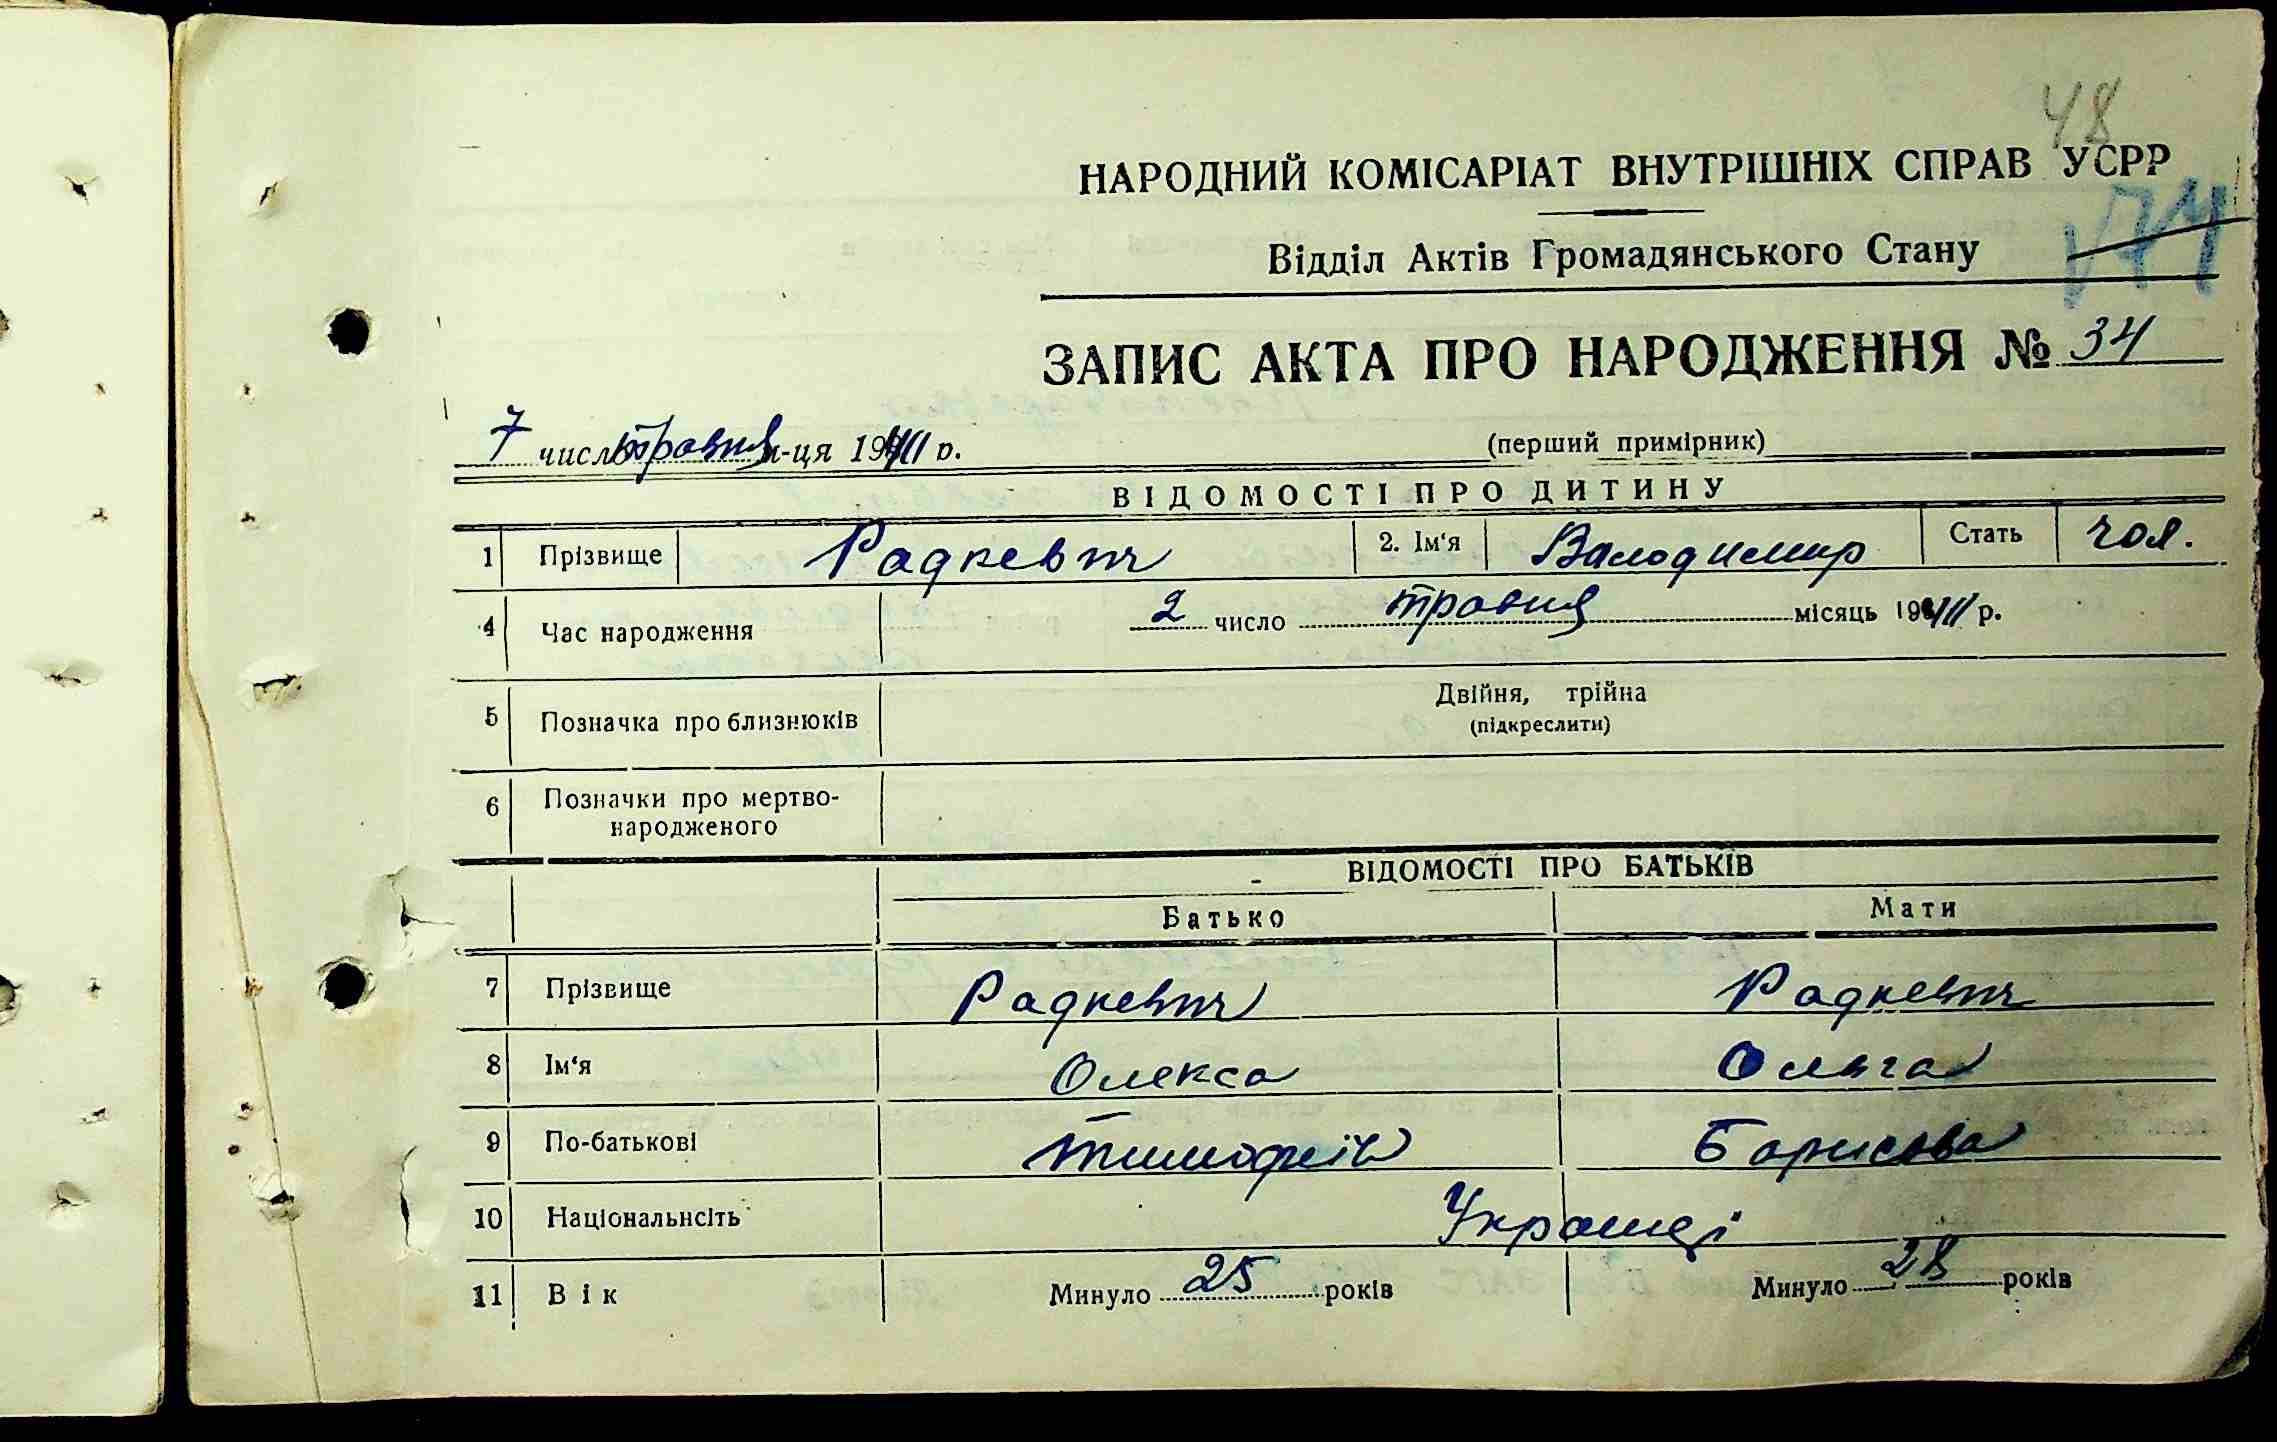 48
НАРОДНИЙ КОМІСАРІАТ ВНУТРІШНІХ СПРАВ УСРР
Відділ Актів Громадянського Стану
ЗАПИС АКТА ПРО НАРОДЖЕННЯ № 34
7 число травня м-ця 19 р.
(перший примірник)
ВІДОМОСТІ ПРО ДИТИНУ
1 Прізвище Радкевич 2. Ім‘я Володимир Стать чол.
4 Час народження 2 число травня місяць 19 р.
5 Позначка про близнюків Двійня, трійна
(підкреслити)
6 Позначки про мертво-
народженого
ВІДОМОСТІ ПРО БАТЬКІВ
Батько Мати
7 Прізвище Радкевич Радкевич
8 Ім‘я Олекса Ольга
9 По-батькові Тимофеїв Борисова
10 Національнсіть Українці
11 Вік Минуло 25 років Минуло 28 років